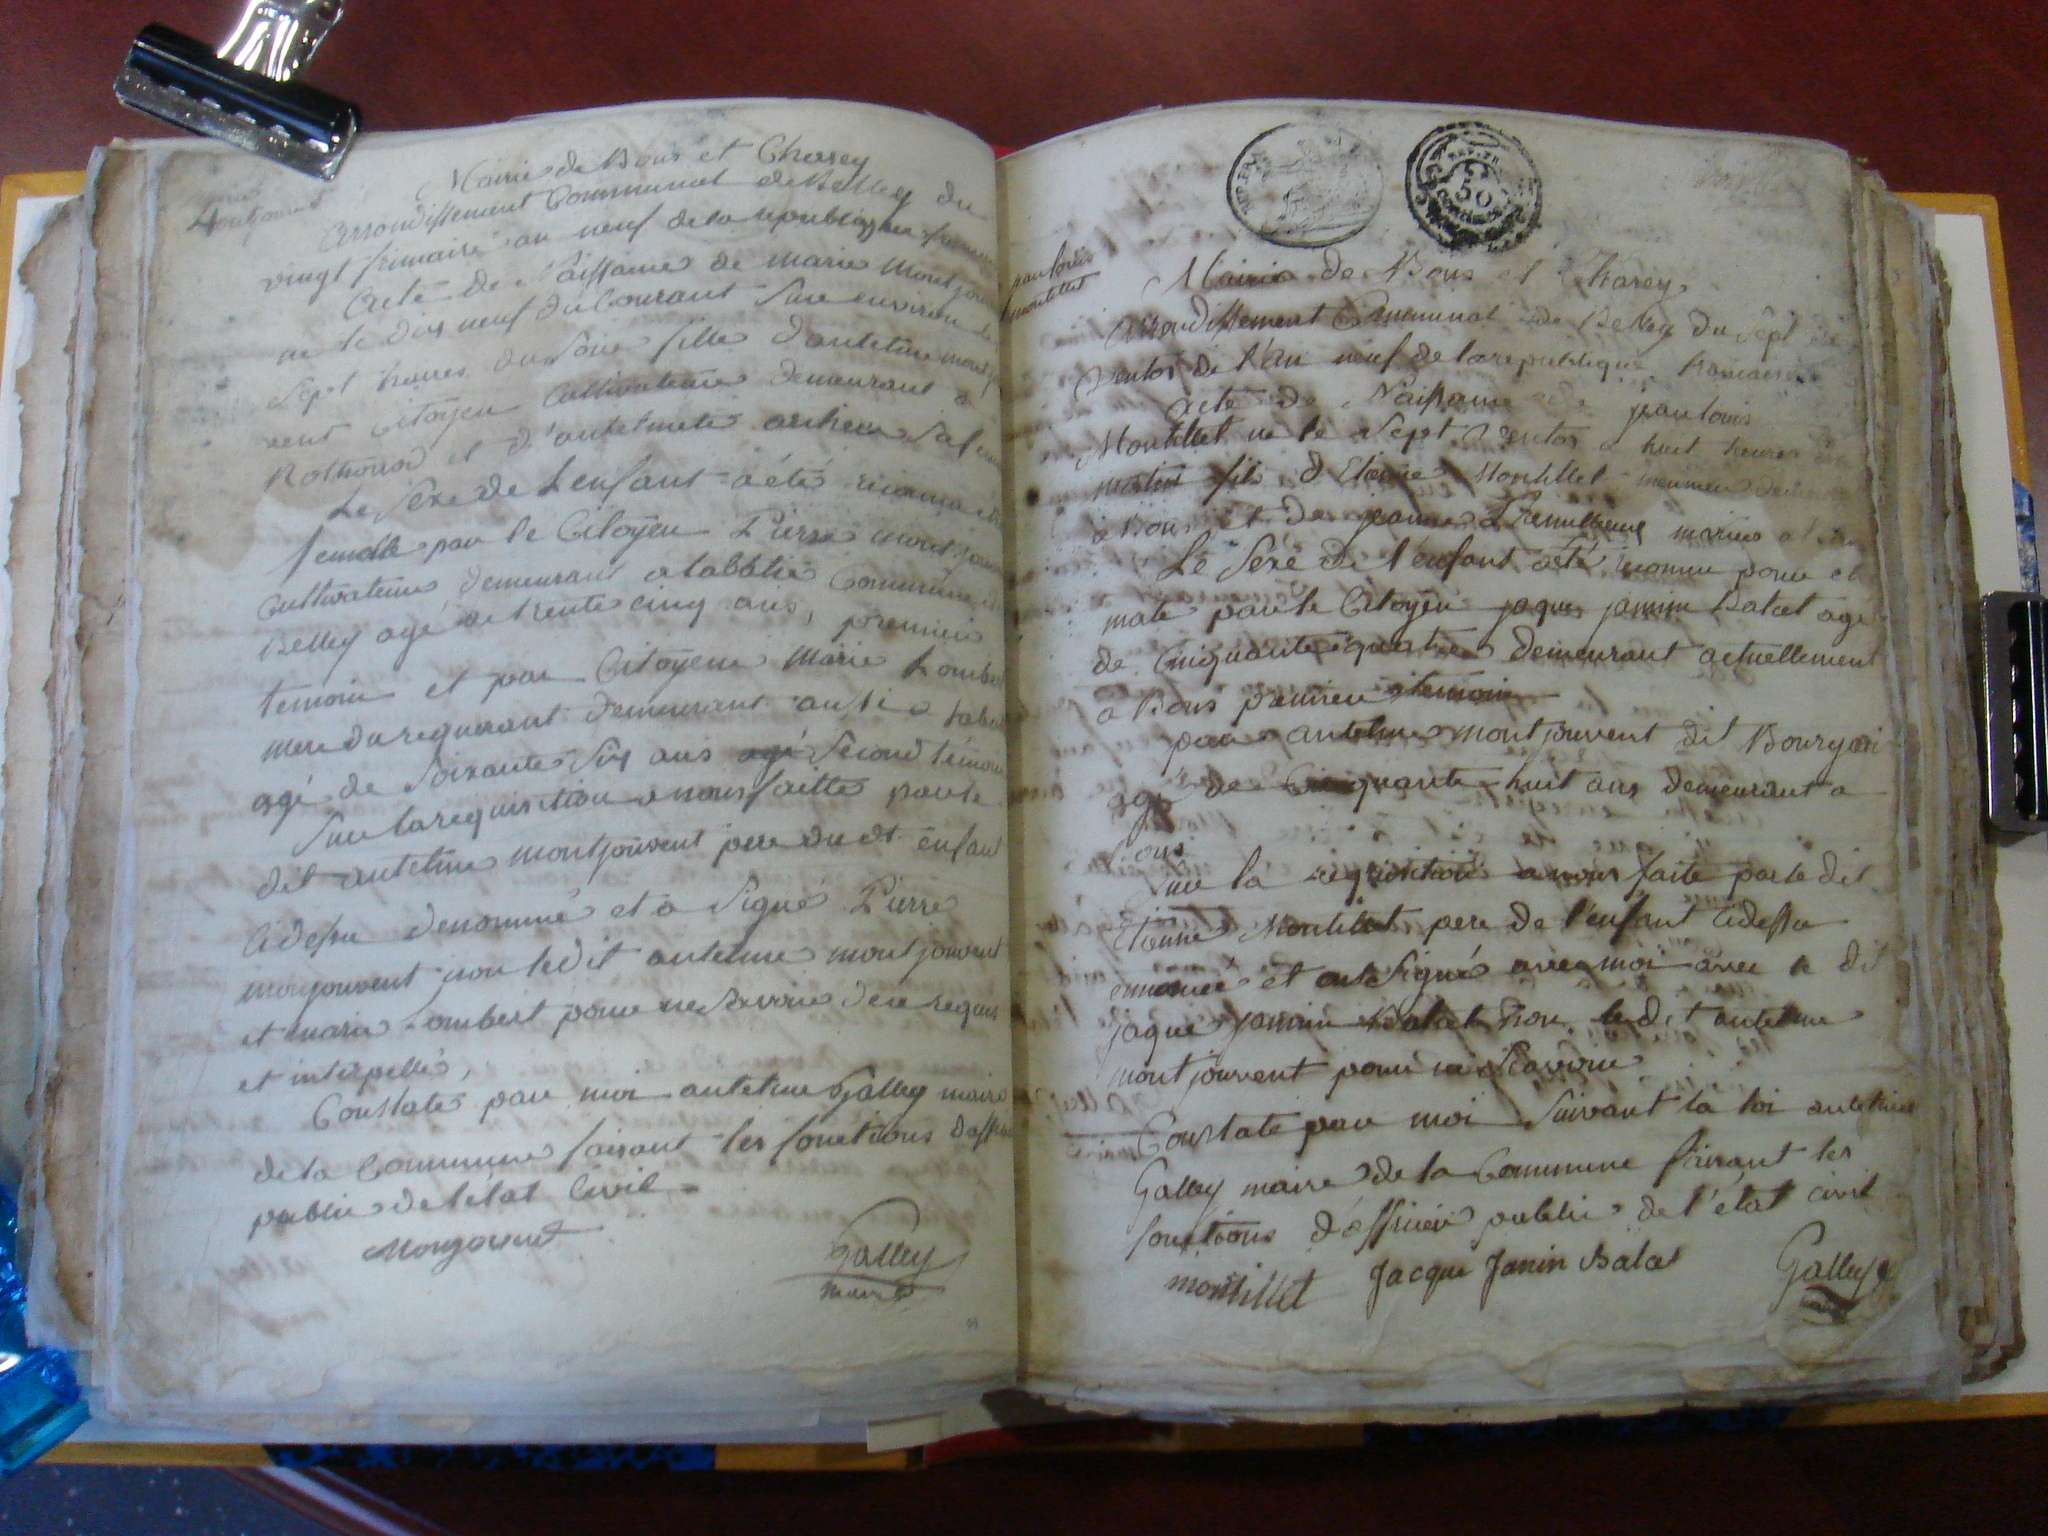 Mairie de Bons et Chasey
arrondissement Communal de Belley du
vingt frimaire an neuf de la republique
Acte de Naissance de marie montjou
ne le dix neuf du Courant Sur environ
Sept heures du Soir fille d'antelme
vent Citoyen Cultivateur demeurant a
et d'antelmete
Le Sexe de L'enfant a été reconnu
femelle par le Citoyen Pierre montjou
Cultivateur demeurant a labbtie Commune
Belley agé de trente cinq ans, premier
temoin et par Citoyene Marie Lombe
mere du requerant demeurant aussi a
agé de Soixante Six ans agé Second témoin
Sur la requisition a nous faitte par le
dit antelme montjouvent pere du dt enfant
Cidessu denommé et a Signé Pierre
monjouvent non ledit antelme montjouvent
et marie Lombert pour ne Savoir de ce requis
et intepellé,
Constaté par moi antelme Galley maire
de la Commune faisant les fonctions d'offi
public de l'état Civil
Monjovent
Galley
maire
jean louis
montillet
50
Mairie de Bons et Chasey
arrondissement Communal de Belley du Sept
Ventos de l'an neuf de la republique
acte de Naissance de jean louis
Montillet ne le Sept Ventos a huit heures
matin fils d'Etienne Montillet
a Bons et de jeanne mariés
Le Séxe de l'enfant a été reconnu pour et
male par le Citoyen jaques janin Balat agé
de Cinquante quatre demeurant actuellement
a Bons premier temoin
par antelme montjouvent dit
agé de Cinquante huit ans demeurant a
Bons
Sur la requisition a nous faite par le dit
Etienne Montillet pere de l'enfant Cidessu
ennomée et ont Signé avec moi avec le dit
jaque janin Balat non le dit antelme
montjouvent pour ne Scavoir
Constaté par moi Suivant la loi antelme
Galley maire de la Commune faisant les
fonctions d'officier public de l'état civil
montillet Jacque Janin Balat Galley